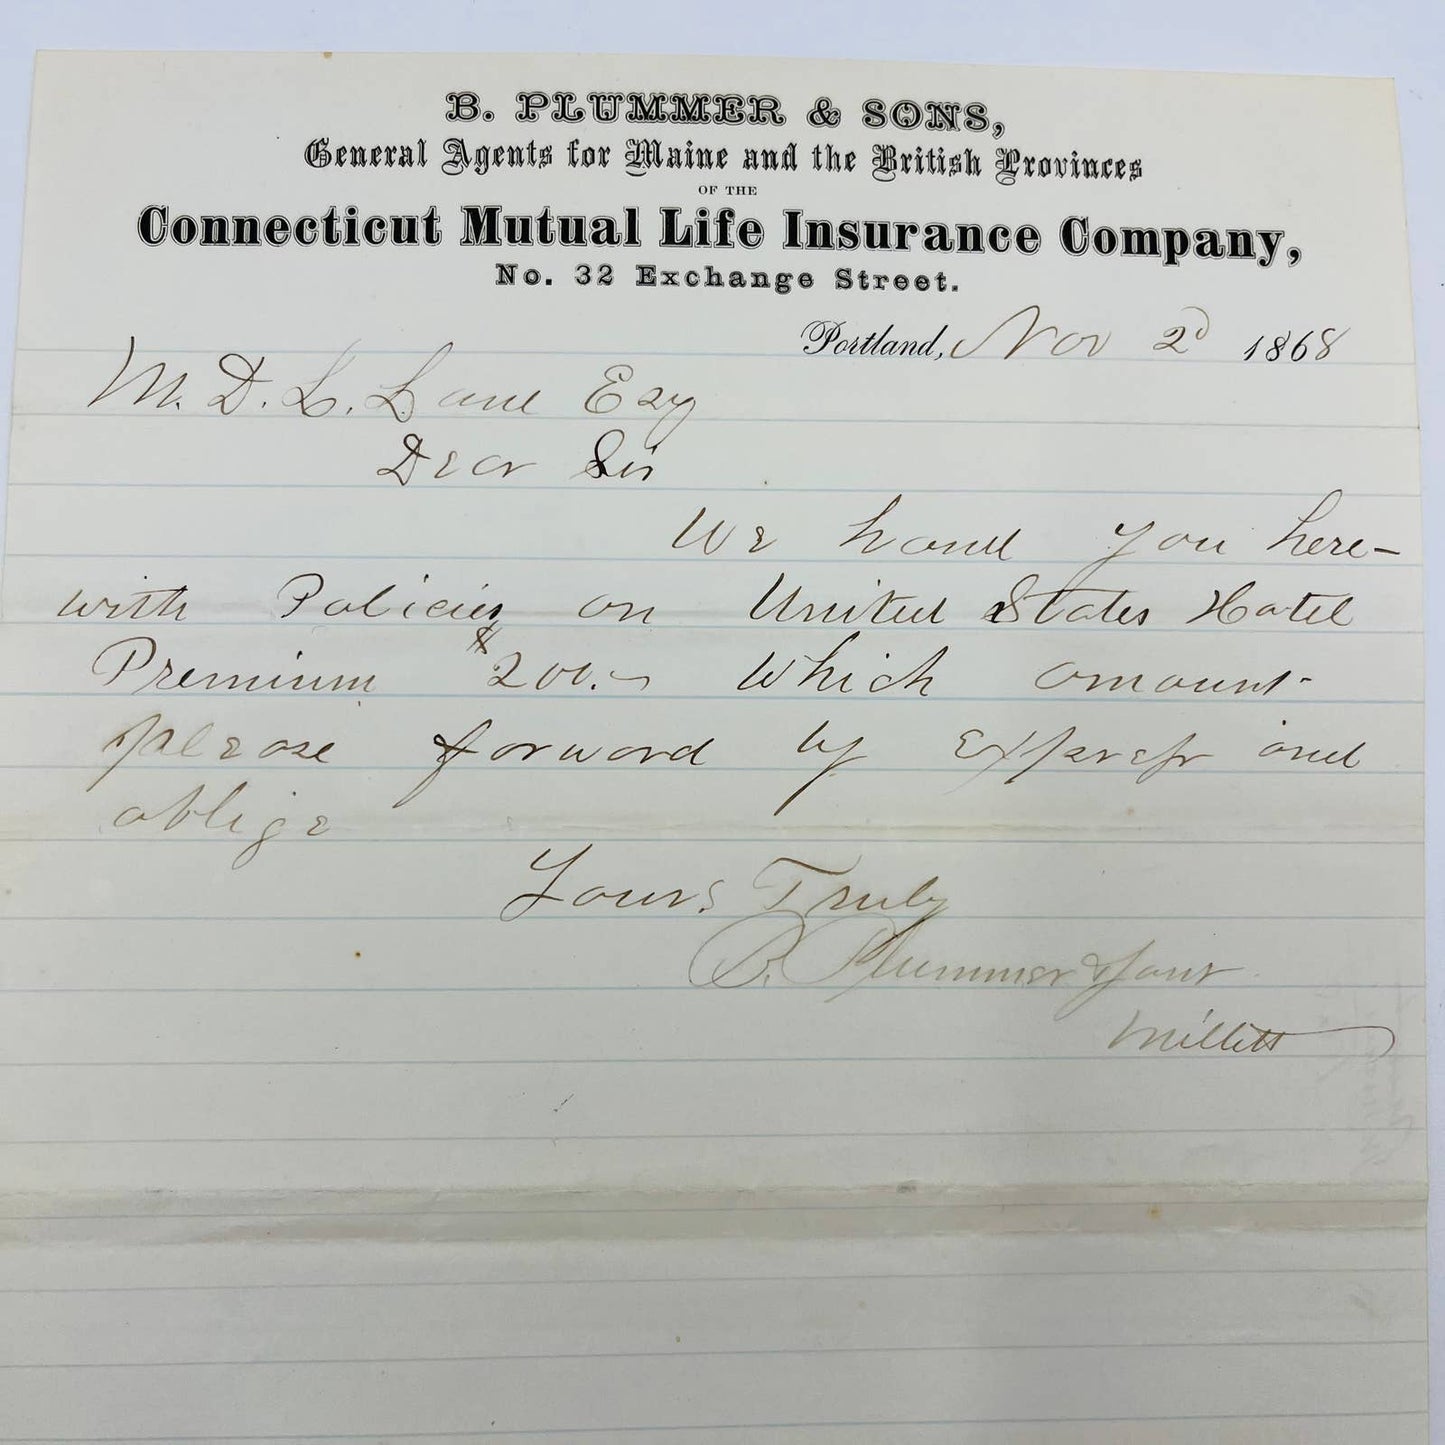 B. PLUMMER & SONS,
General Agents for Maine and the British Provinces
OF THE
Connecticut Mutual Life Insurance Company,
No. 32 Exchange Street.
Portland, Nov 2d 1868
M. D. L. Lane Esq
Dear Sir
We hand you here-
with Policies on United States Hotel
Premium $200.– which amount
please forward by Express and
oblige
Yours Truly
B. Plummer & Sons
Millett